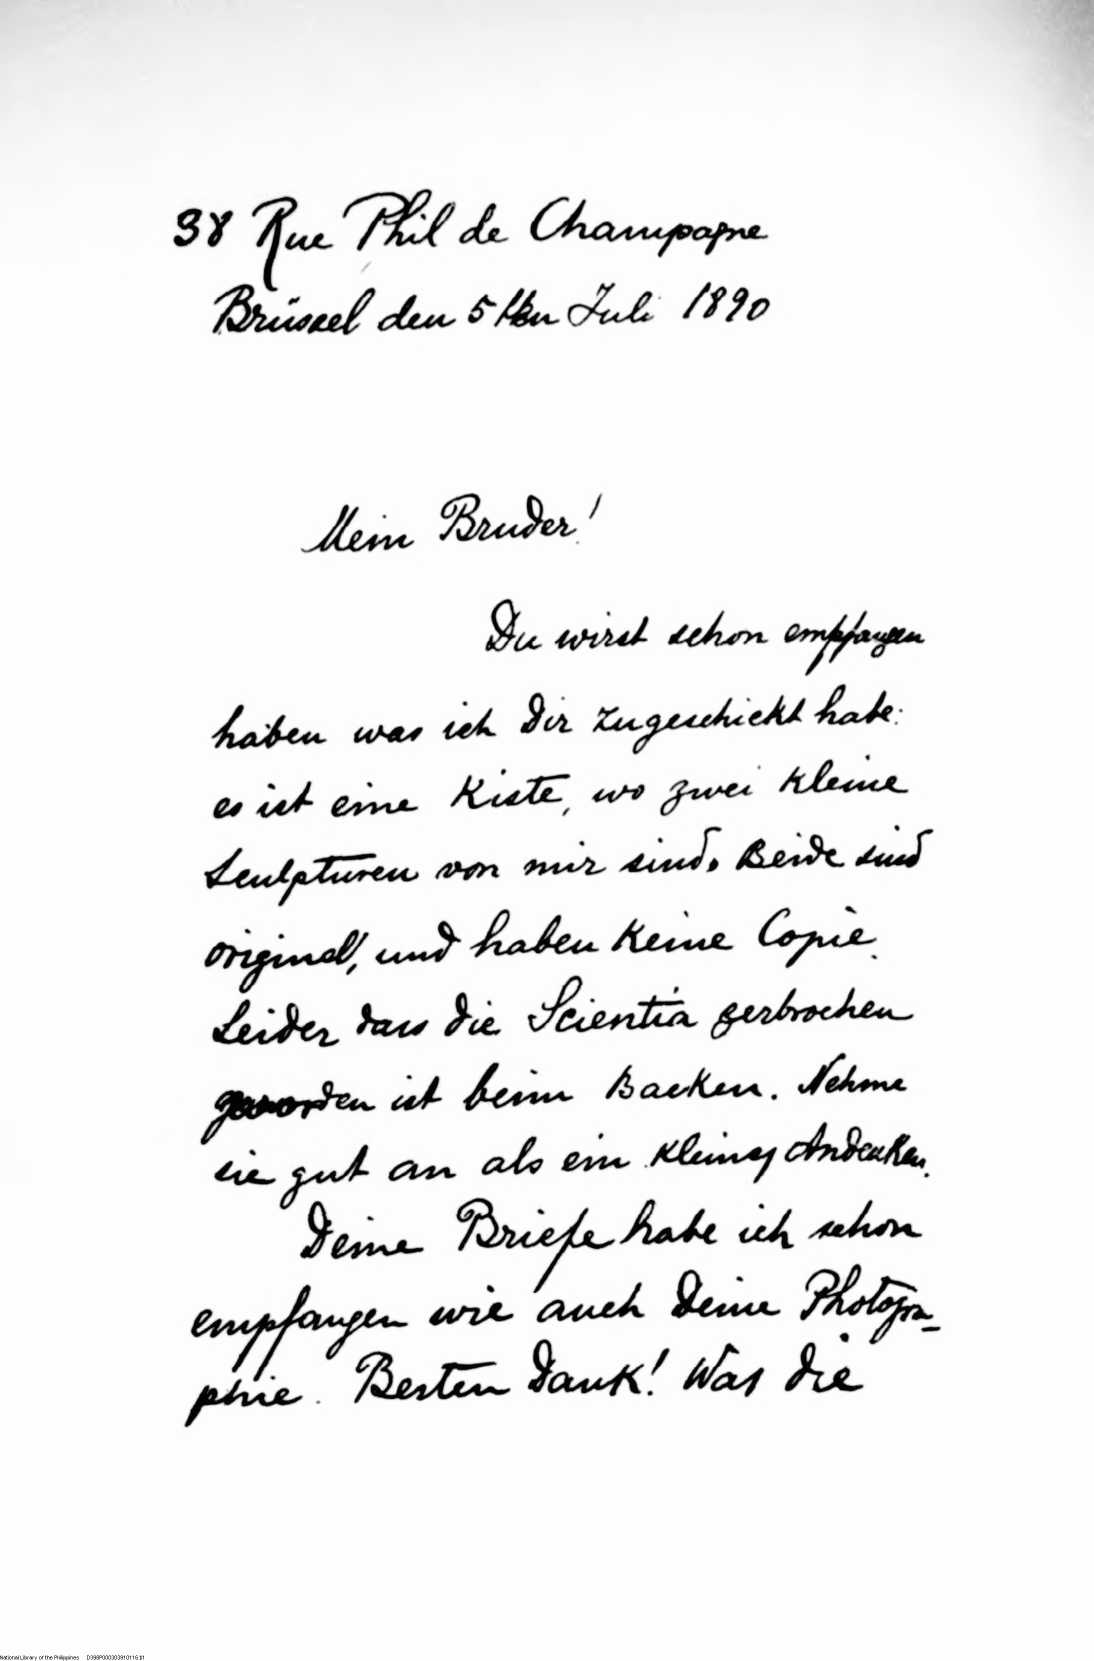 38 Rue Phil de Champagne
Brüssel den 5 ten Juli 1890
Mein Bruder!
Du wirst schon empfangen
haben was ich Dir zugeschickt habe:
es ist eine Kiste, wo zwei kleine
Sculpturen von mir sind. Beide sind
original, und haben keine Copie.
Leider dass die Scientia zerbrochen
geworden ist beim Backen. Nehme
sie gut an als ein kleines Andenken.
Deine Briefe habe ich schon
empfangen wie auch Deine Photogra-
phie. Besten Dank! Was die
National Library of the Philippines